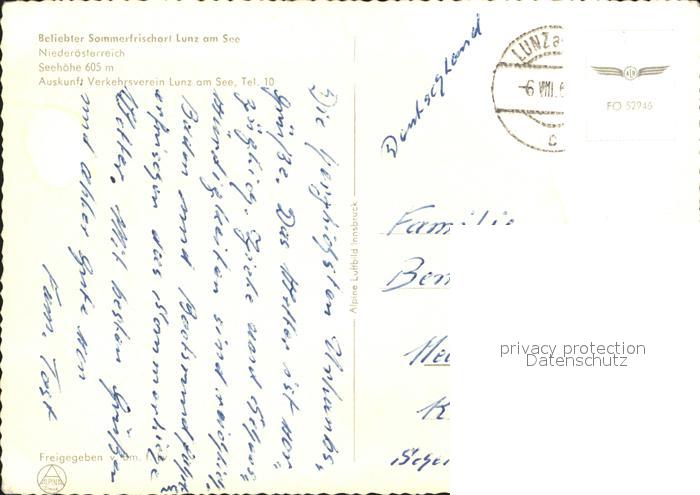 Beliebter Sommerfrischort Lunz am See
Niederösterreich
Seehöhe 605 m
Auskunft Verkehrsverein Lunz am See, Tel. 10
Die herzlichsten Urlaubs-
grüße. Das Wetter ist vor-
züglich. Ziele und Sehens-
würdigkeiten sind reichlich.
Baden und
das sommerliche
Wetter. Mit besten Grüßen
und alles Gute von
Fam. Tost
Freigegeben v. bm. f.
ALPINE
Alpine Luftbild Innsbruck
Deutschland
LUNZ a
-6. VIII. 6
c
FO 52946
Familie
Ben
privacy protection
Datenschutz